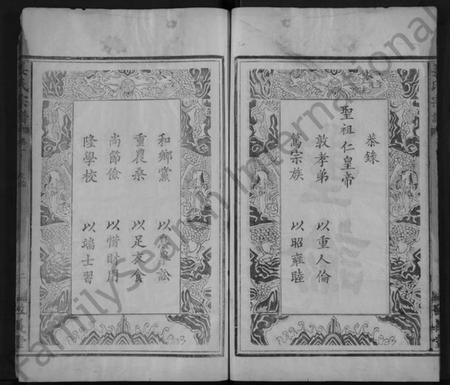 恭錄
聖祖仁皇帝
敦孝弟 以重人倫
篤宗族 以昭雍睦
和鄉黨 以 訟
重農桑 以足衣食
尚節儉 以惜財用
隆學校 以端士習
FamilySearch International